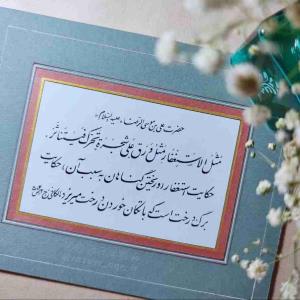 حضرت علی بن موسی الرضا علیه‌السلام:
مَثَلُ الاِستِغفارِ مَثَلُ وَرَقٍ عَلیٰ شَجَرَةٍ تُحَرَّکُ فَیَتَناثَرُ.
حکایت استغفار و ریختن گناهان به سبب آن، حکایت
برگ درخت است که با تکان خوردن درخت میریزد.